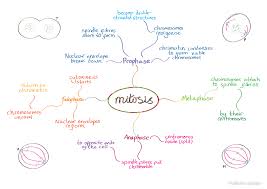 become double-
stranded structures
spindle fibres
start to form
chromosomes
reorganise
Nuclear envelope
break down
chromatin condenses
to form visible
chromosomes
Prophase
cytokinesis
starts
return to
chromatin
chromosomes uncoil
Telophase
mitosis
Metaphase
chromosomes attach
to spindle fibres
by their
centromeres
Nuclear envelopes
reform
Anaphase
to opposite ends
of the cell
centromeres
divide (split)
spindle fibres pull
chromatids